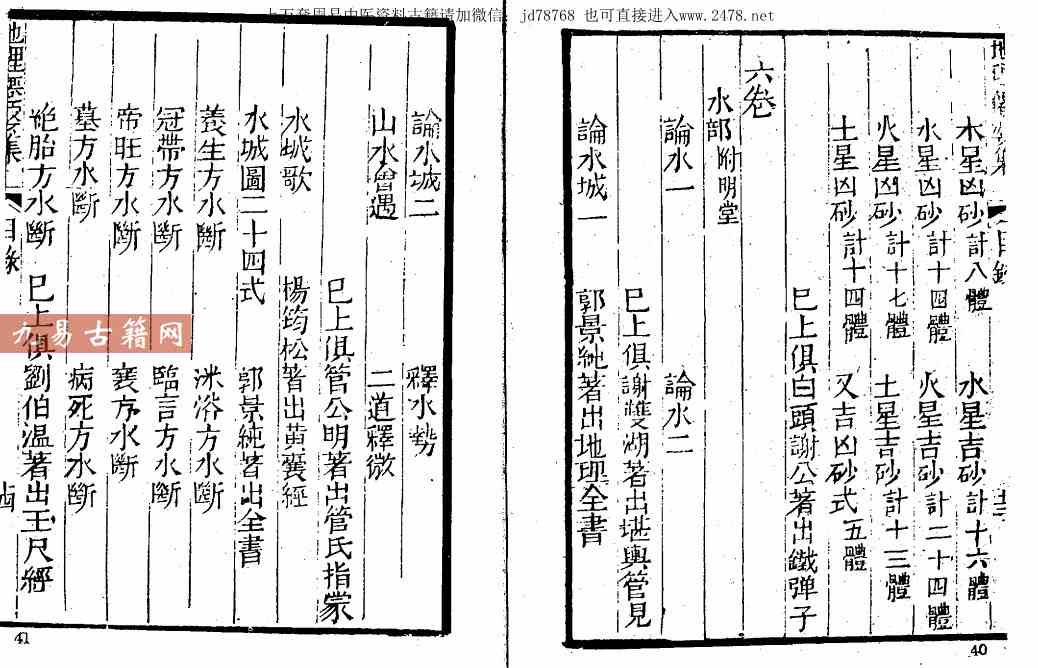 上万套周易中医资料古籍请加微信: jd78768 也可直接进入www.2478.net
木星凶砂計八體 水星吉砂計十六體
水星凶砂計十四體 火星吉砂計二十四體
火星凶砂計十七體 土星吉砂計十三體
土星凶砂計十四體 又吉凶砂式五體
巳上俱白頭謝公著出鐵彈子
六卷
水部附明堂
論水一 論水二
巳上俱謝雙湖著出堪輿管見
論水城一 郭景純著出地理全書
40
論水城二 釋水勢
山水會遇 二道釋微
巳上俱管公明著出管氏指蒙
水城歌 楊筠松著出黃囊經
水城圖二十四式 郭景純著出全書
養生方水斷 沐浴方水斷
冠帶方水斷 臨官方水斷
帝旺方水斷 衰方水斷
墓方水斷 病死方水斷
絶胎方水斷 巳上俱劉伯溫著出玉尺經
目錄
41
易古籍网